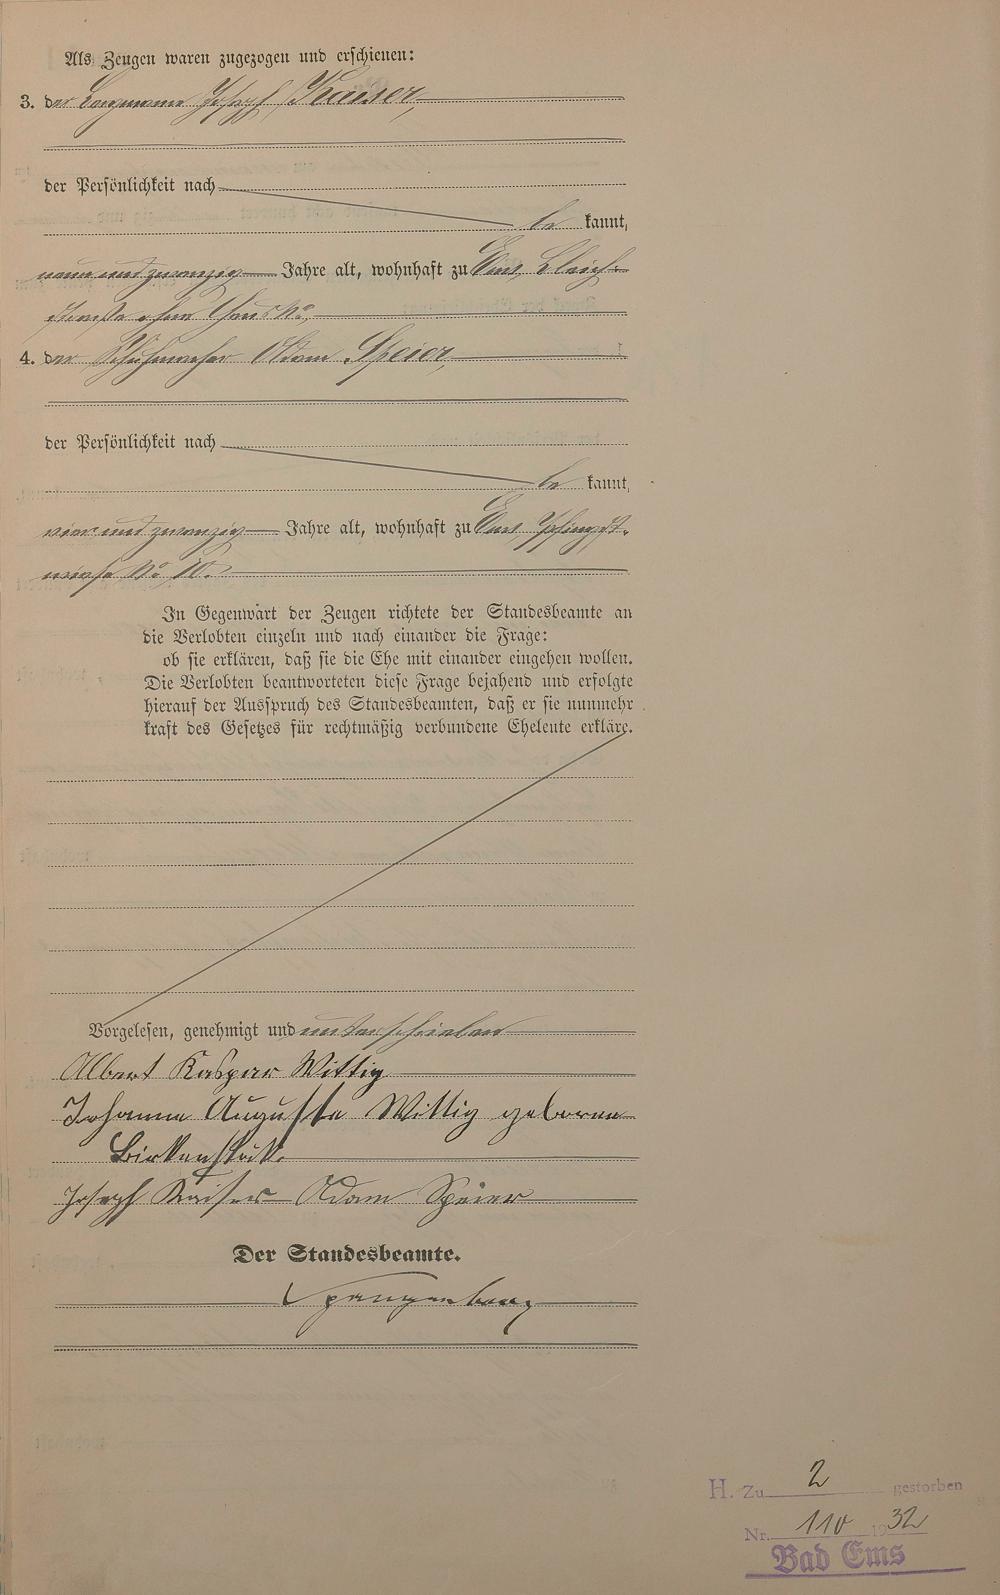 Als Zeugen waren zugezogen und erschienen:
3. der Bergmann Joseph Kaiser,
der Persönlichkeit nach
be kannt,
neun und zwanzig Jahre alt, wohnhaft zu Ems, Bleich-
straße ohne Haus No.
4. der Schuhmacher Adam Speier,
der Persönlichkeit nach
be kannt,
vier und zwanzig Jahre alt, wohnhaft zu Ems, Pfingst-
wiese No 10.
In Gegenwart der Zeugen richtete der Standesbeamte an
die Verlobten einzeln und nach einander die Frage:
ob sie erklären, daß sie die Ehe mit einander eingehen wollen.
Die Verlobten beantworteten diese Frage bejahend und erfolgte
hierauf der Ausspruch des Standesbeamten, daß er sie nunmehr
kraft des Gesetzes für rechtmäßig verbundene Eheleute erkläre.
Vorgelesen, genehmigt und unterschrieben
Albert Kaspar Wittig
Johanna Auguste Wittig geborene
Birkenstock.
Joseph Kaiser Adam Speier
Der Standesbeamte.
Spangenberg
H. Zu 2 gestorben
Nr. 110 1932
Bad Ems